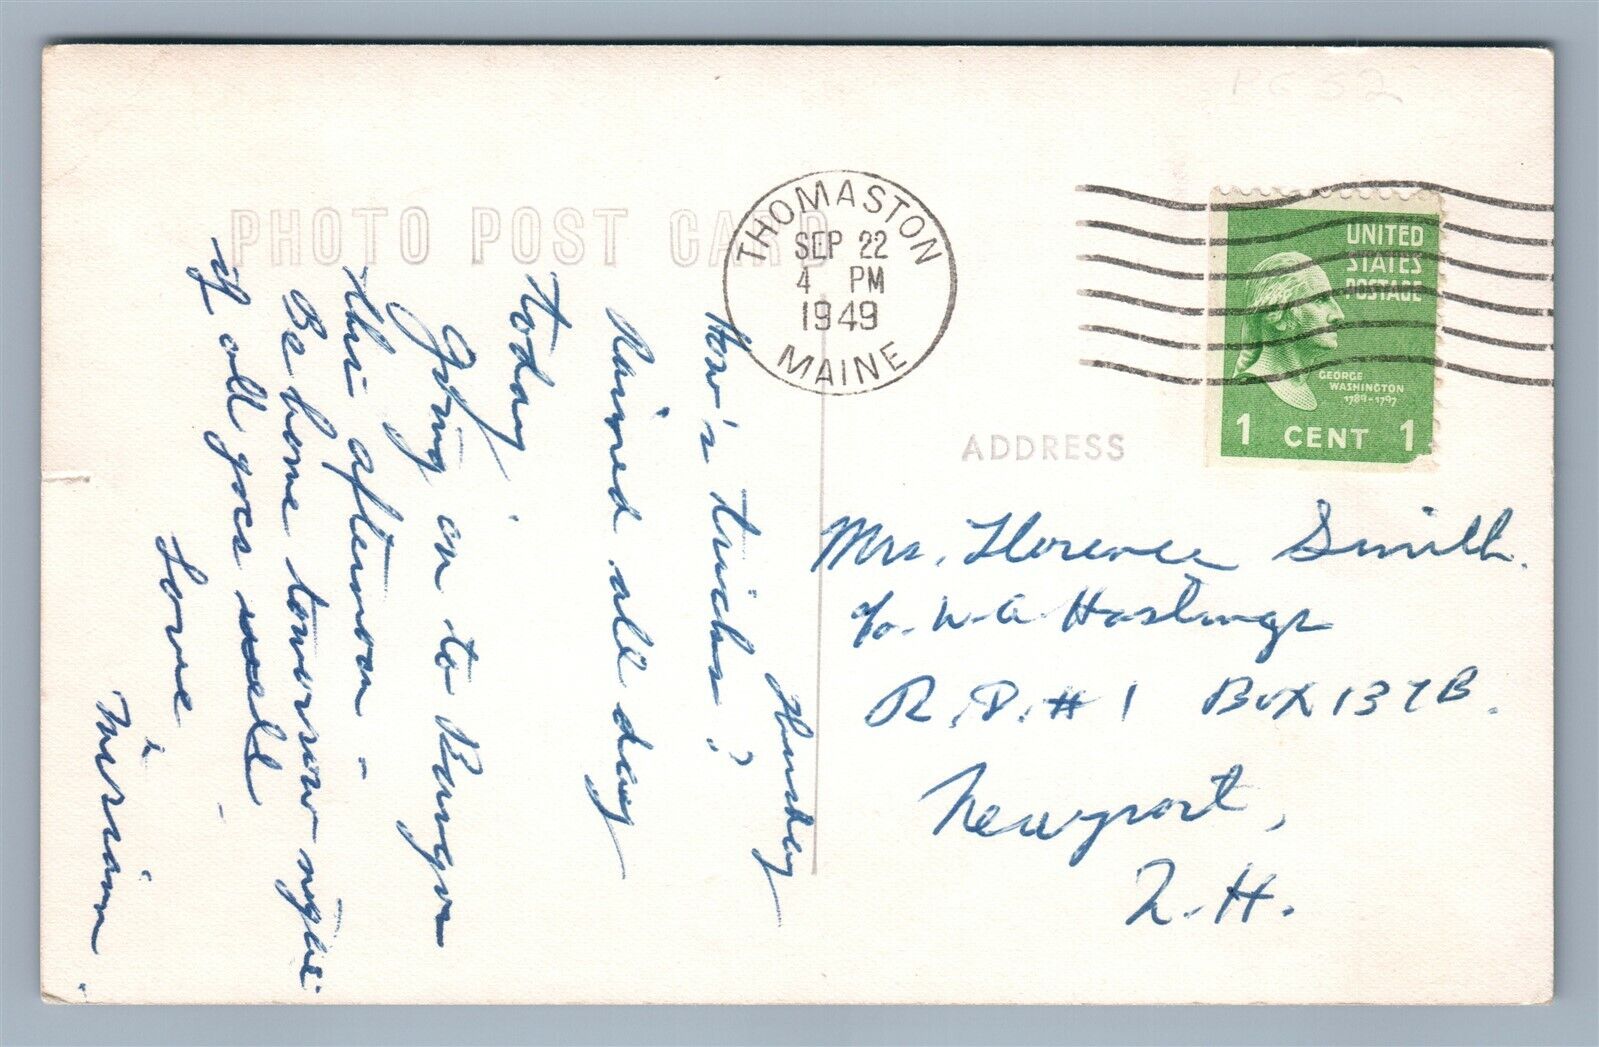 PC52
PHOTO POST CARD
THOMASTON
SEP 22
4 PM
1949
MAINE
UNITED
STATES
POSTAGE
GEORGE
WASHINGTON
1789-1797
1 CENT 1
ADDRESS
Thursday
How's tricks?
Rained all day
today.
Going on to Bangor
this afternoon -
Be home tomorrow night
if all goes well
Love
Miriam
Mrs. Florence Smith.
c/o. W. A Hastings
R.D. #1 Box 137B.
Newport,
N.H.